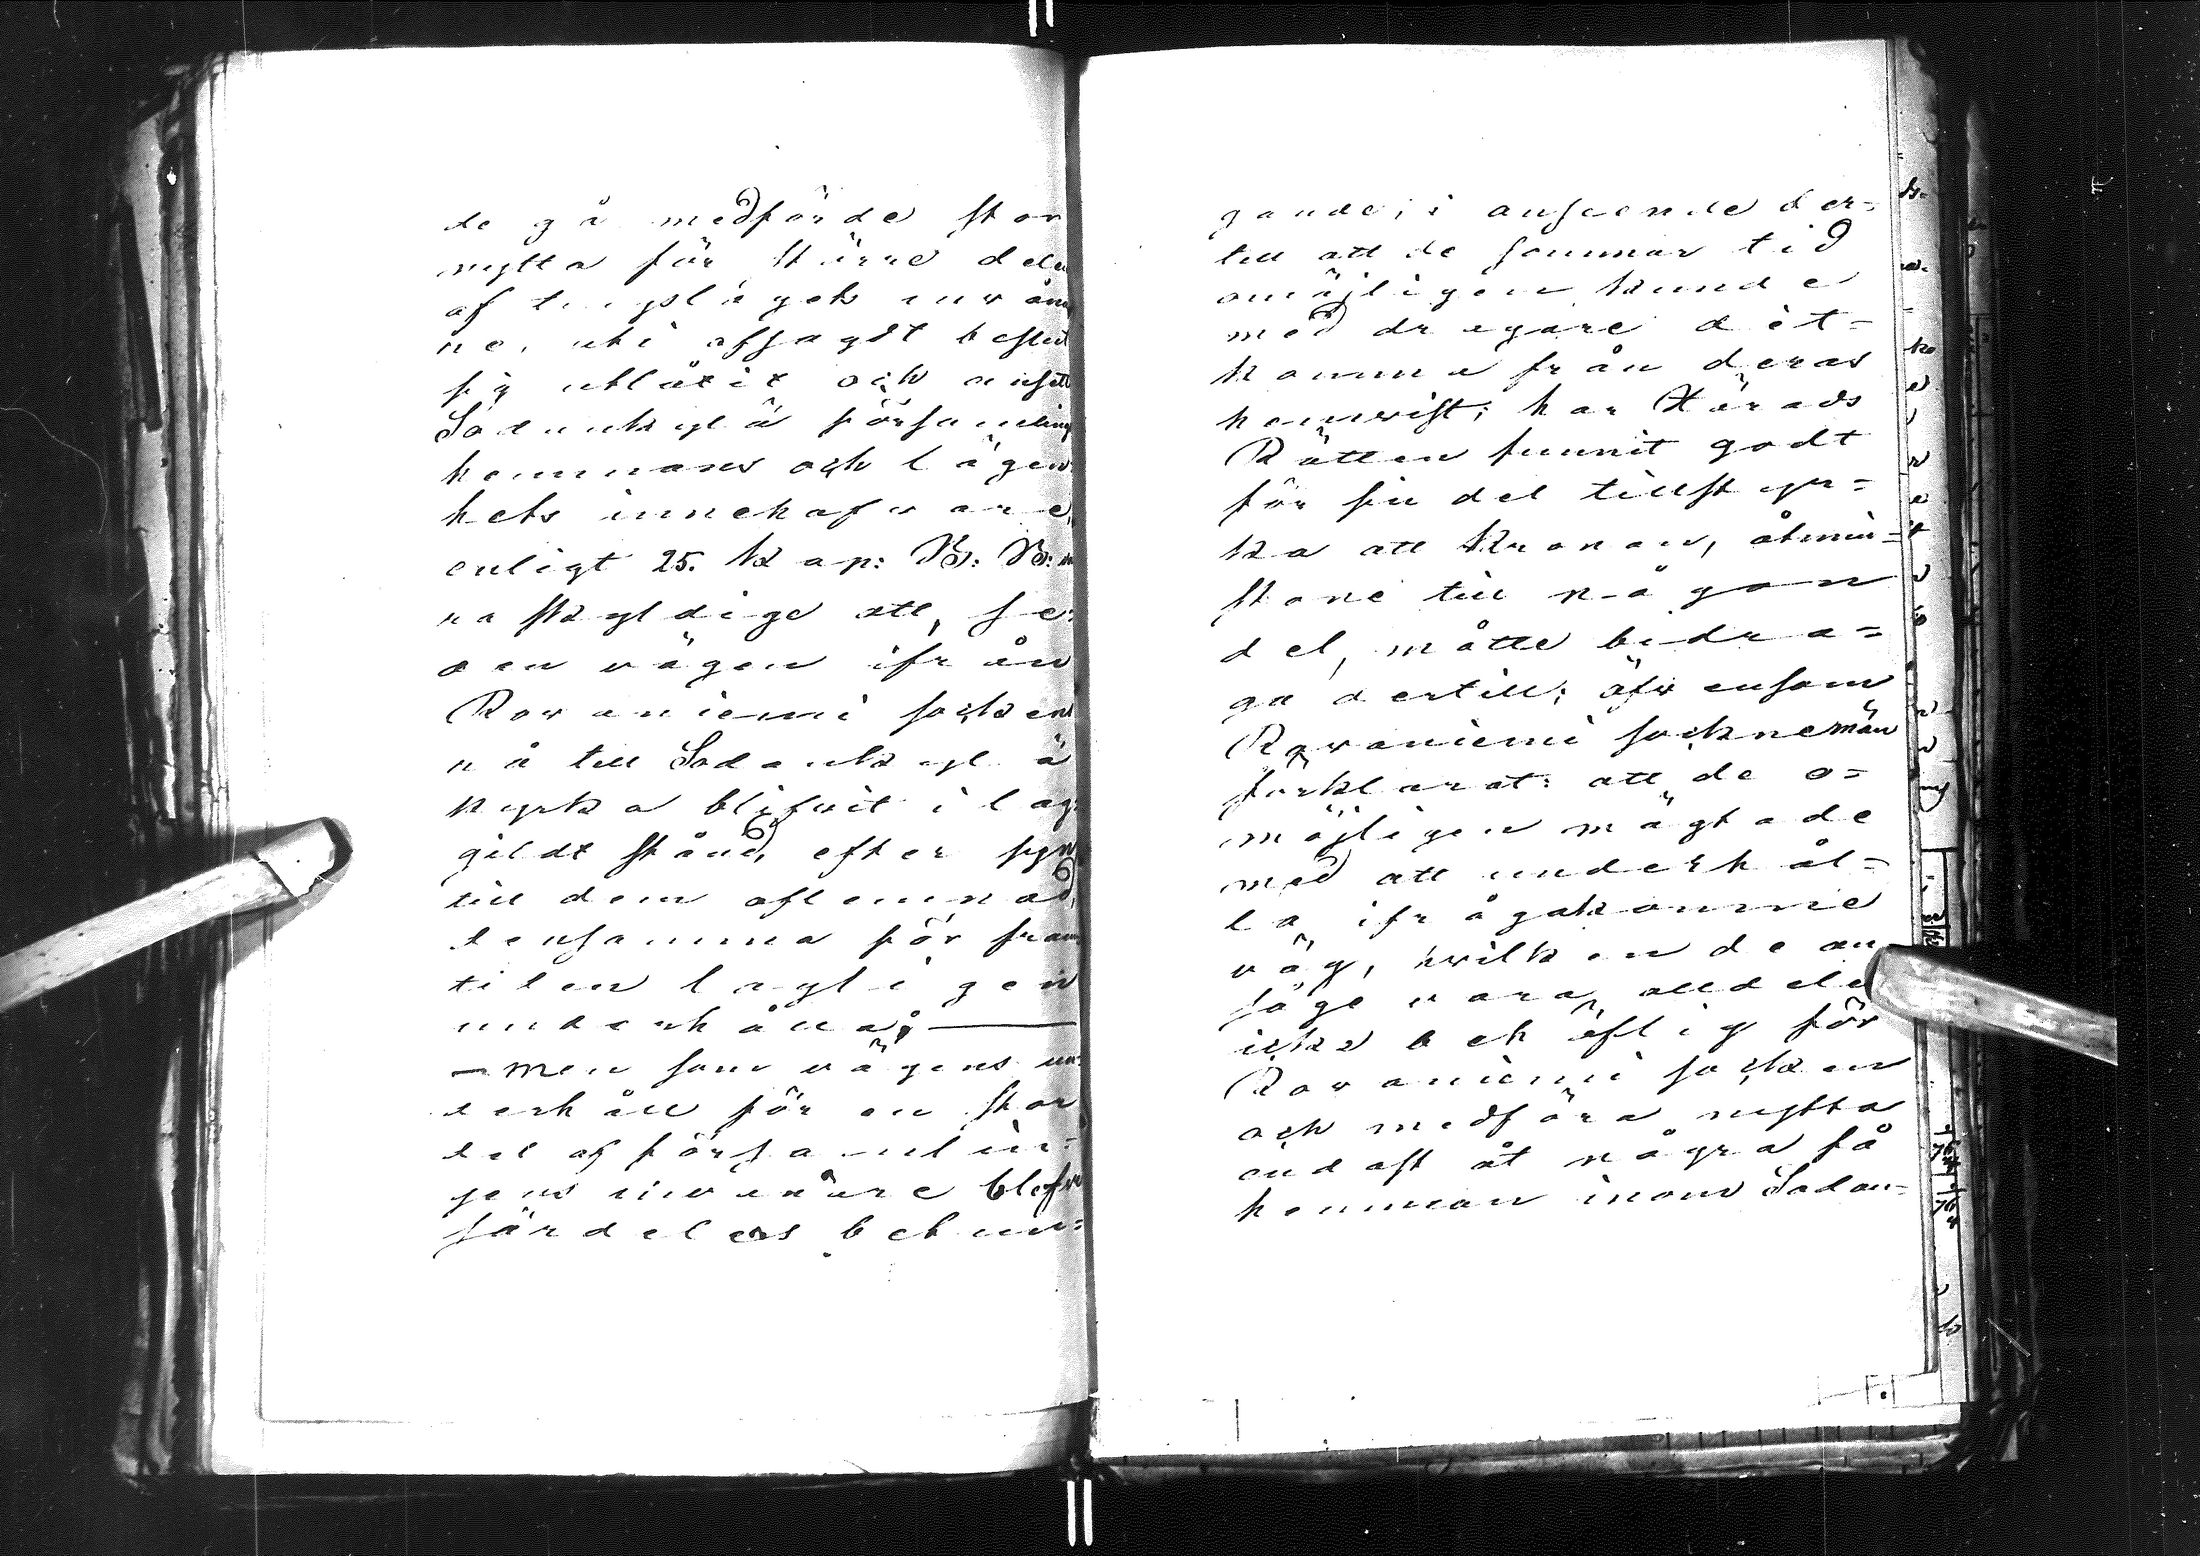 de gå medförde stor
nytta för större delen
af tingslagets invåna
ne, uti afsagdt beslut
sig utlåtit och ansett
Sodankylä församlings
hemmans och lägen
hets innehafvare,
enligt 25. Kap: B: B:
ra skyldige att, se-
dan vägen ifrån
Rovaniemi socken
nå till Sodankylä
kyrka blifvit i lag-
gildt stånd, efter syn
till dem aflemnad,
densamma för fram
tiden lagligen
underhålla; —
— men som vägens un-
derhåll för en stor
del af församlin-
gens invånare blefve
särdeles betun-
gande; i anseende der-
till att de sommar tid
omöjligen kunde
med dragare dit-
komma från deras
hemvist; har Härads
Rätten funnit godt
för sin del tillstyr-
ka att Kronan, åtmin-
stone till någon
del, måtte bidra-
ga dertill; äfvensom
Rovaniemi socknemän
förklarat: att de o-
möjligen mägtade
med att underhål-
la ifrågakomne
väg, hvilken de an
såge vara alldeles
icke behöflig för
Rovaniemi socken
och medföra nytta
endast åt några få
hemman inom Sodan-